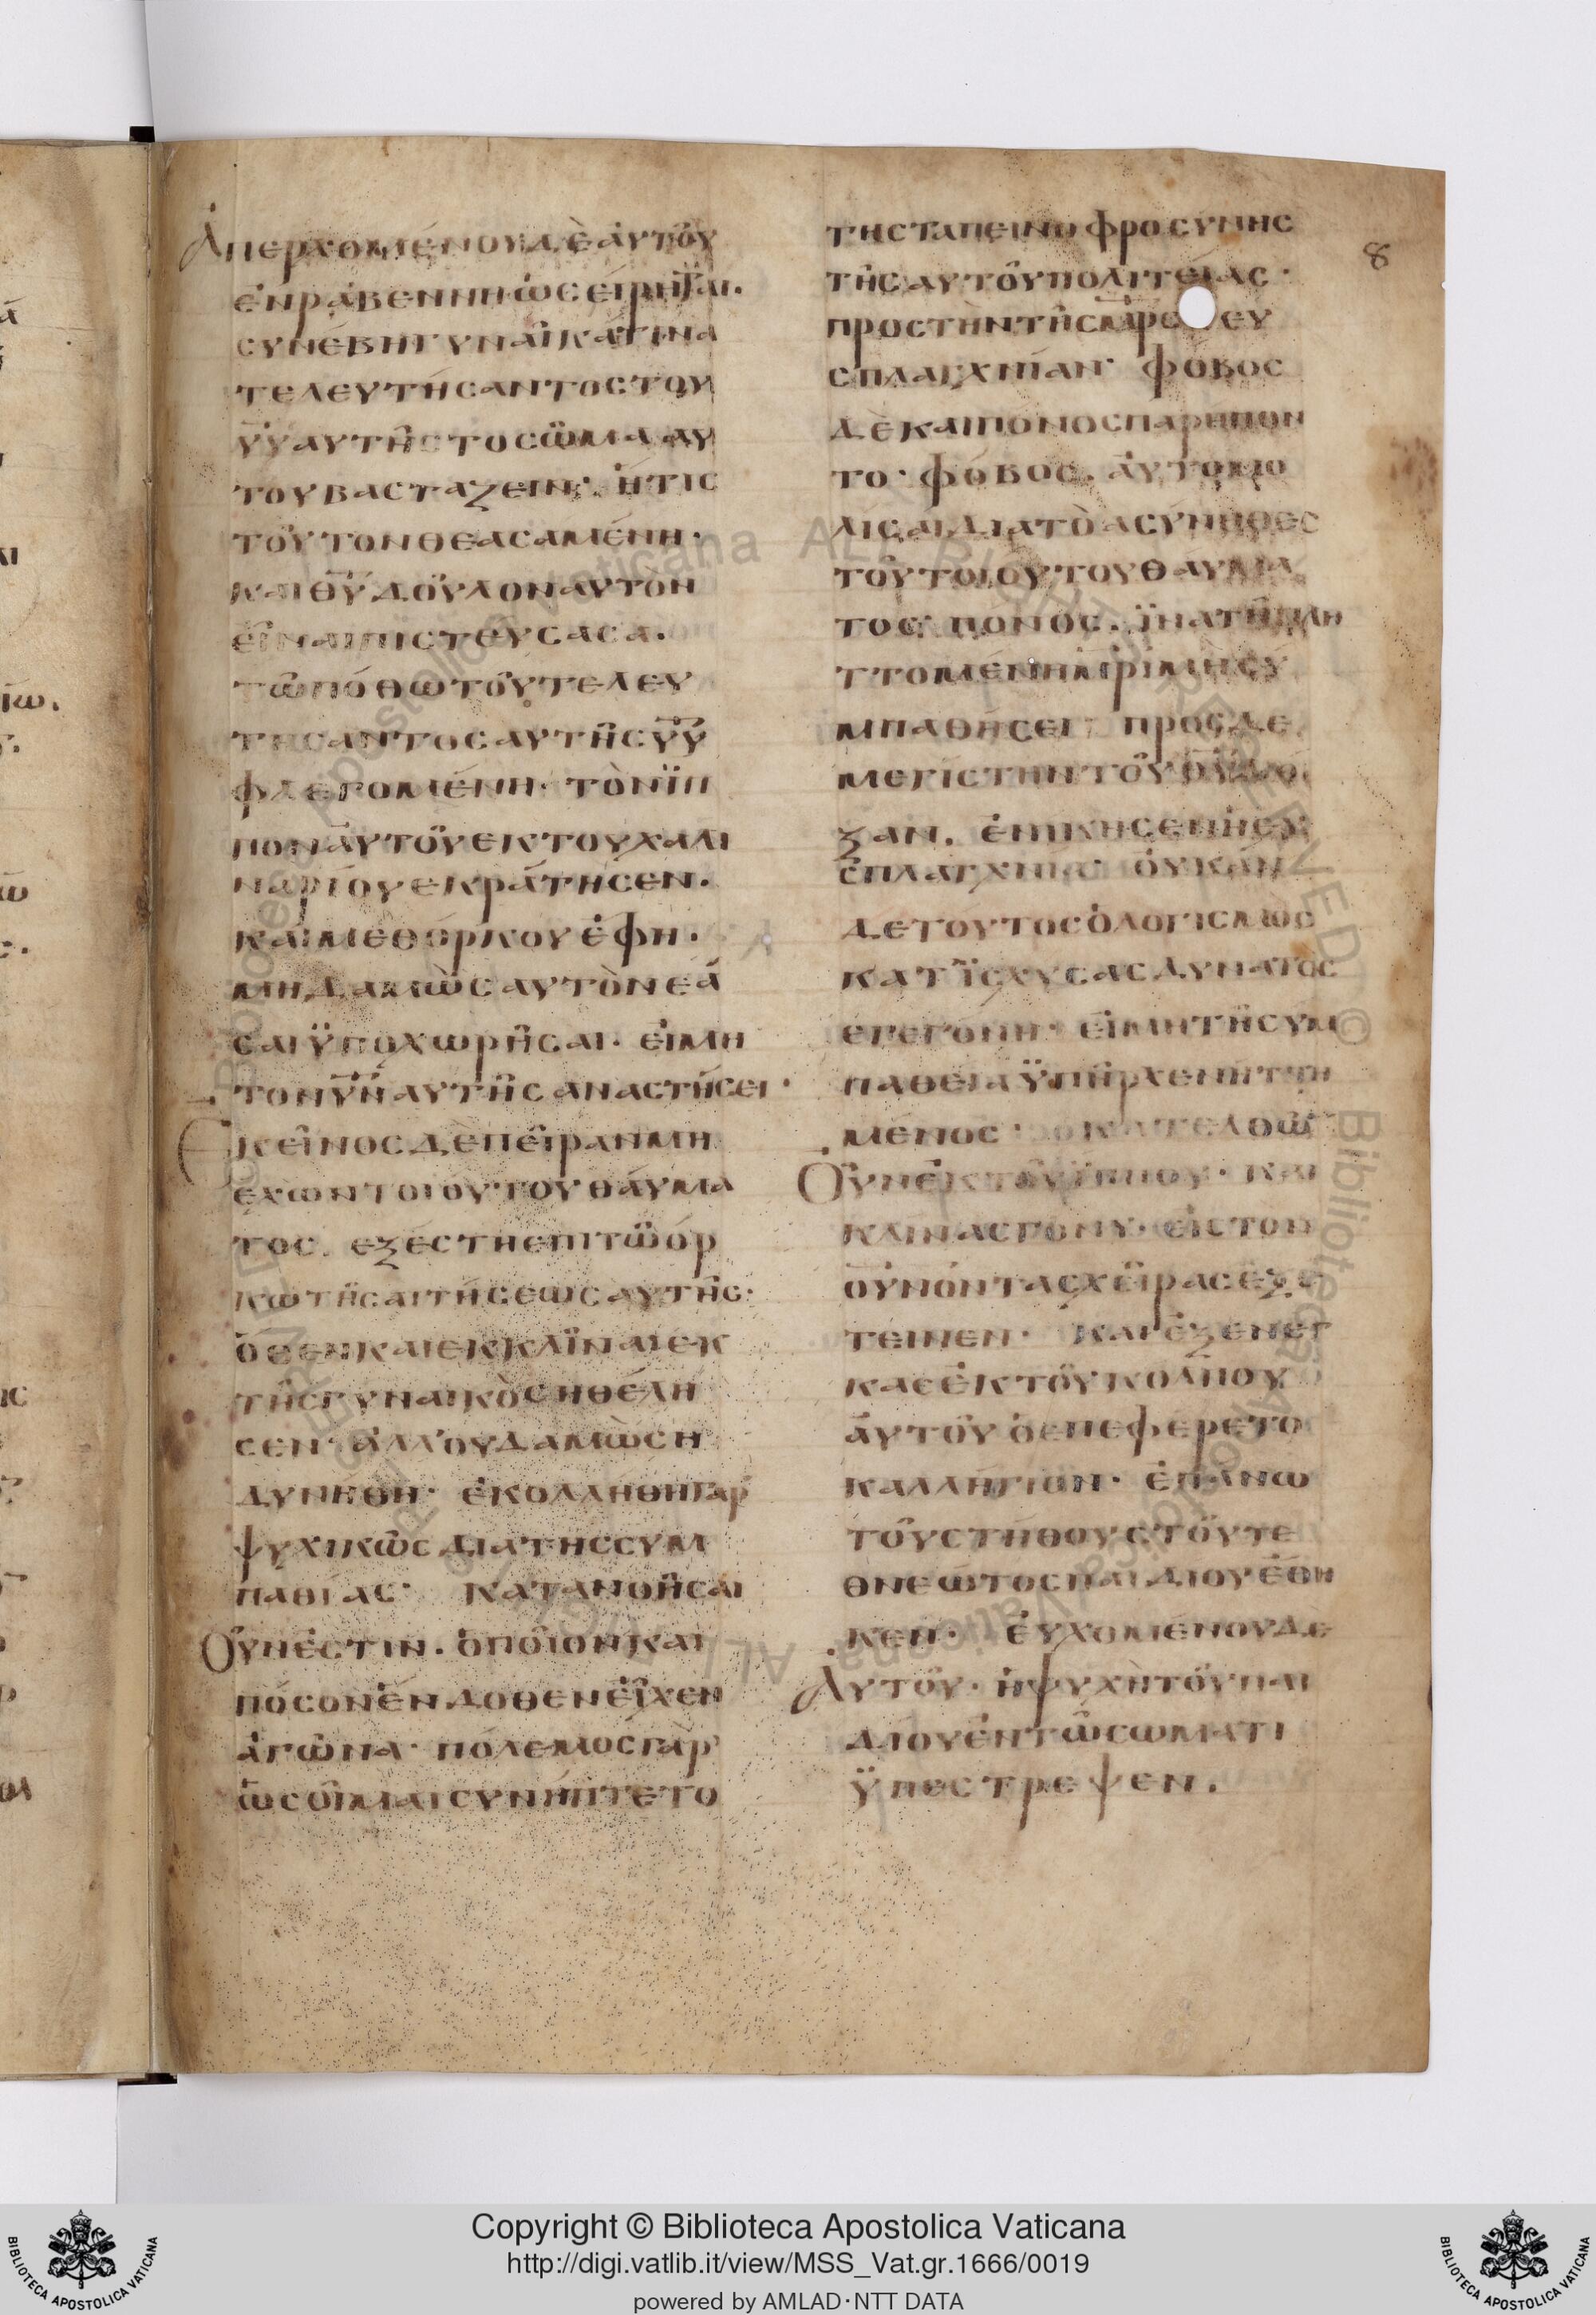 Ἀπερχομένου δὲ ἀυτοῦ
ἐν ραβεννη ὡς είρηται·
συνέβη γυνᾶικα τινα
τελευτήσαντος του
ῡῡ αυτῆς το σῶμα αυ
του βασταζειν· ἡτις
τοῦτον θεασαμένη·
και θ̄ῡ δοῦλον αυτον
εἶναι πιστευσασα·
τῶ πόθω τοῦ τελευ
τησαντος αυτῆς ῡῡ
φλεγομένη· τὸν ϊπ
πον ἀυτοῦ εκ του χαλι
ναριου εκράτησεν·
και μεθ όρκου ἐφη·
μηδαμῶς αυτὸν εά
σαι ϋποχωρῆσαι· εἰ μη
τον ῡν̄ αυτῆς αναστήσει·
Εκεῖνος δὲ πεῖραν μη
εχων τοιούτου θάυμα
τος. εξέστη επι τῶ όρ
κω τῆς αιτήσεως αυτῆς·
ὁθεν και εκκλῖναι εκ
τῆς γυναικὸς ηθέλη
σεν· ἀλλ' ουδαμῶς η
δυνήθη· ἐκολλήθη γαρ
ψυχικῶς δια της συμ
παθίας· κατανοῆσαι
Οῦν ἐστιν. ὁποῖον και
πόσον ἐνδοθεν εῖχεν
ἀγῶνα· πόλεμος γὰρ
ὡς οῖμαι συνήπτετο
της ταπεινοφροσυνης
τῆς αυτοῦ πολιτείας·
προς τὴν τῆς μρ̄ς ευ
σπλαγχνίαν· φόβος
δὲ και πονος παρηπον
το· φόβος. ἀυτομο
λίσαι δια τὸ ασύνηθες
τοῦ τοιουτου θαυμα
τος· πονος. ϊνα τῆ πλη
ττομένη μρ̄ι μη συ
μπαθήσει· προς δε
μεγίστην τοῦ θ̄ῡ δο
ξαν. ἐνικησεν ἡ ευ
σπλαγχνια· ὀυκ ἀν
δε τουτος ὁ λογισμος
κατϊσχυσας δυνατος
εγεγόνη· εἰ μη τῆ συμ
παθεια ϋπῆρχεν ηττη
μενος· κατελθω̄
Οῦν ἐκ του ϊππου· και
κλινας γονυ· εἰς τον
ο̄υνον τας χεῖρας ἐξε
τεινεν· και ἐξενεγ
κας ἐκ τοῦ κολπου
ἀυτοῦ ὁ επεφερετο
καλλήγιον· ἐπάνω
τοῦ στήθους τοῦ τε
θνεῶτος παιδιου ἐθη
κεν· ἐυχομένου δε
Ἀυτοῦ· ἡ ψυχὴ τοῦ παι
διου ἐν τῶ σωματι
ϋπεστρεψεν.
8
Copyright © Biblioteca Apostolica Vaticana
http://digi.vatlib.it/view/MSS_Vat.gr.1666/0019
powered by AMLAD·NTT DATA
BIBLIOTECA APOSTOLICA VATICANA
BIBLIOTECA APOSTOLICA VATICANA